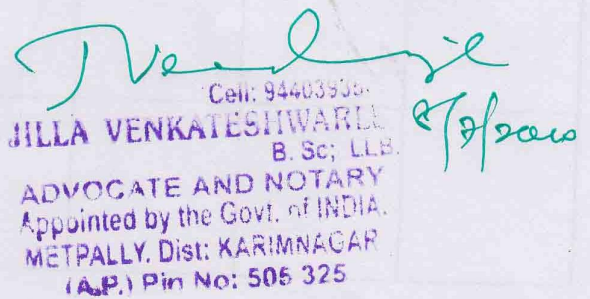 Cell: 94403935
JILLA VENKATESHWARLU
B. Sc; LLB.
ADVOCATE AND NOTARY
Appointed by the Govt. of INDIA.
METPALLY. Dist: KARIMNAGAR
(A.P.) Pin No: 505 325